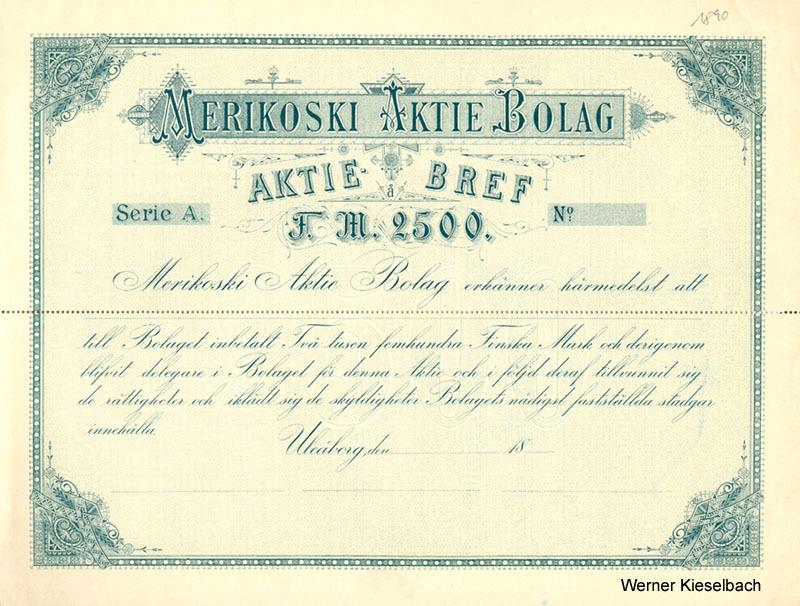 1890
MERIKOSKI AKTIE BOLAG
AKTIE-BREF
à
Serie A.
F. M. 2500.
No
Merikoski Aktie Bolag erkänner härmedelst att
till Bolaget inbetalt Två tusen femhundra Finska Mark och derigenom
blifvit delegare i Bolaget för denna Aktie och i följd deraf tillvunnit sig
de rättigheter och iklädt sig de skyldigheter Bolagets nådigst fastställda stadgar
innehålla.
Uleåborg, den 18
Werner Kieselbach